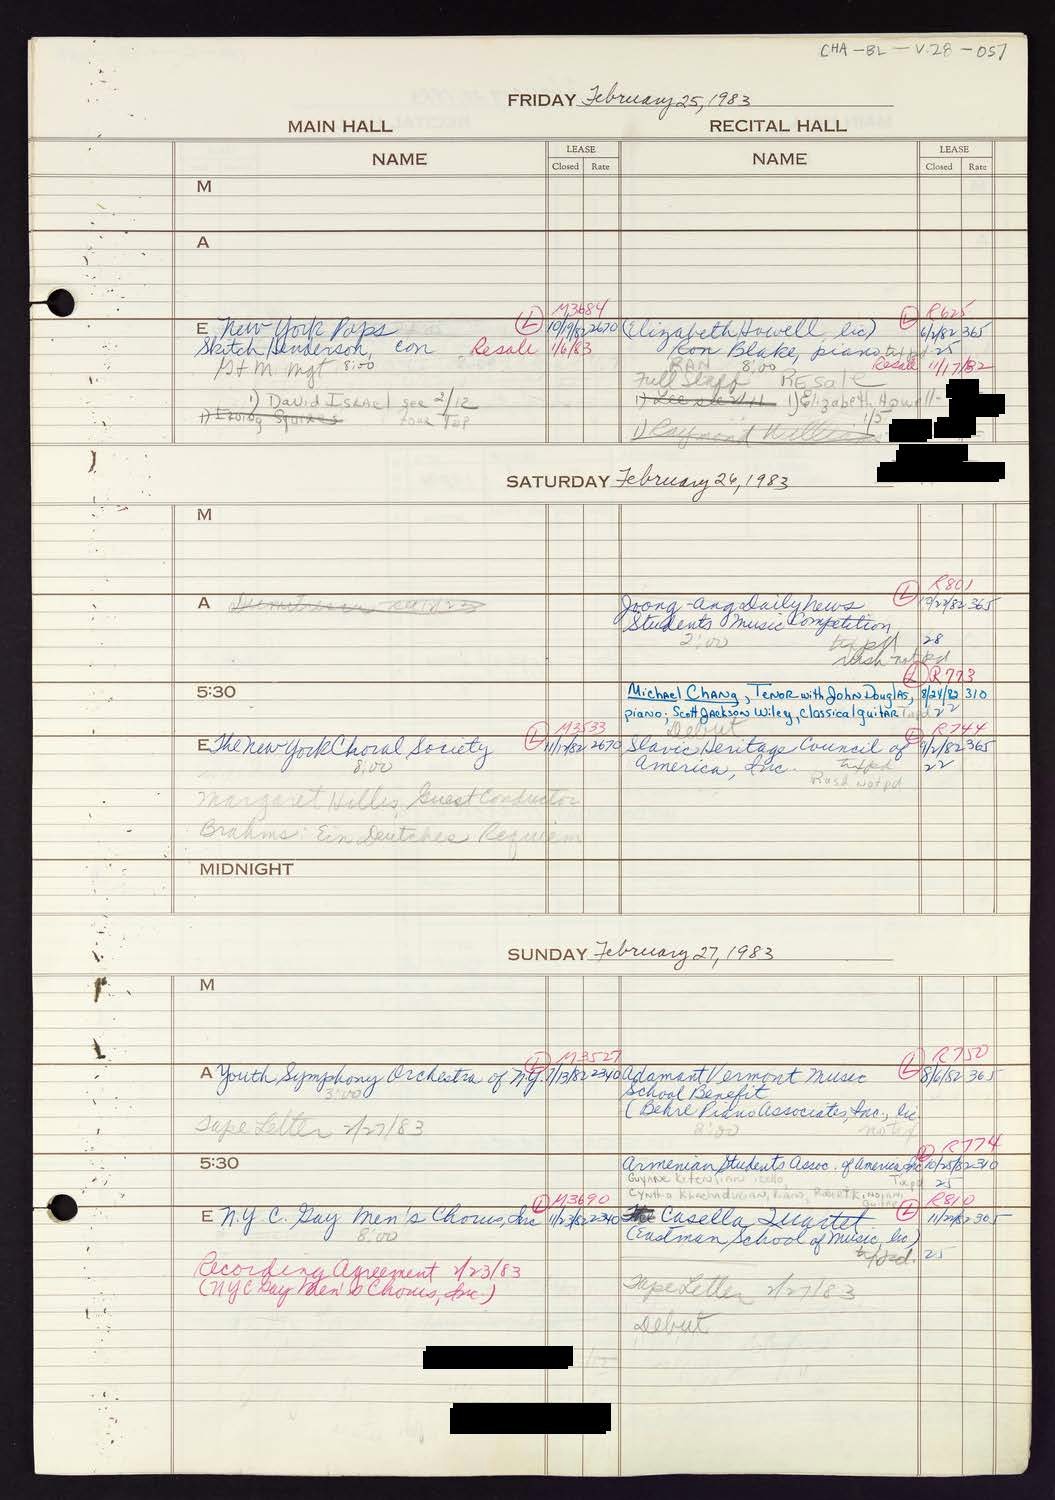 CHA-BL-V.28-057
FRIDAY February 25, 1983
MAIN HALL RECITAL HALL
NAME LEASE NAME LEASE
Closed Rate Closed Rate
M
A
M3684 R625
E New York Pops (L) 10/19/82 2670 (Elizabeth Howell, lic) (L) 6/2/82 365
Skitch Henderson, con Resale 1/6/83 Ron Blake, piano 25
Mgt 8:00 RAN 8:00 Resale 11/17/82
Full Staff RESale
1) David Israel see 2/12 1) Elizabeth Howell-
1) Irving Squires 1/5
1) Raymond
SATURDAY February 26, 1983
M
R801
A Joong-ang Daily News (L) 365
Students Music Competition
2:00 tax pd 28
not pd
(L) R773
5:30 Michael Chang, Tenor with John Douglas, 8/24/82 310
piano, Scott Jackson Wiley, classical guitar Tax pd 22
M3533 Debut R744
E The New York Choral Society (L) 11/17/82 2670 Slavic Heritage Council of (L) 9/2/82 365
8:00 America, Inc. tax pd 22
Rush not pd
Margaret Hillis, Guest Conductor
Brahms: Ein Deutches Requiem
MIDNIGHT
SUNDAY February 27, 1983
M
M3527 R750
A Youth Symphony Orchestra of N.Y. (L) 7/13/82 2340 Adamant Vermont Music (L) 8/6/82 365
3:00 School Benefit
(Behre Piano Associates, Inc., lic
Tape Letter 2/27/83 2:00
R774
5:30 Armenian Students Assoc. of America, Inc (L) 10/25/82 310
cello, Tax pd 25
Cynthia Khachadurian, Piano, Robert
M3690 guitar R810
E N.Y.C. Gay Men's Chorus, Inc (L) 11/23/82 2340 The Casella Quartet (L) 11/29/82 305
8:00 (Eastman School of Music, lic)
tax pd. 25
Recording Agreement 2/23/83
(NYC Gay Men's Chorus, Inc.) Tape Letter 2/27/83
Debut